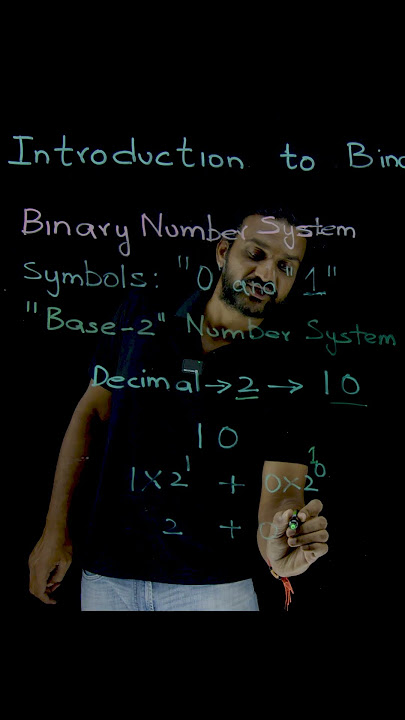 Introduction to Binc
Binary Number System
Symbols: "0 and "1"
"Base-2" Number System
Decimal → 2 → 10
10
1
1x2¹ + 0x2⁰
2 + 0